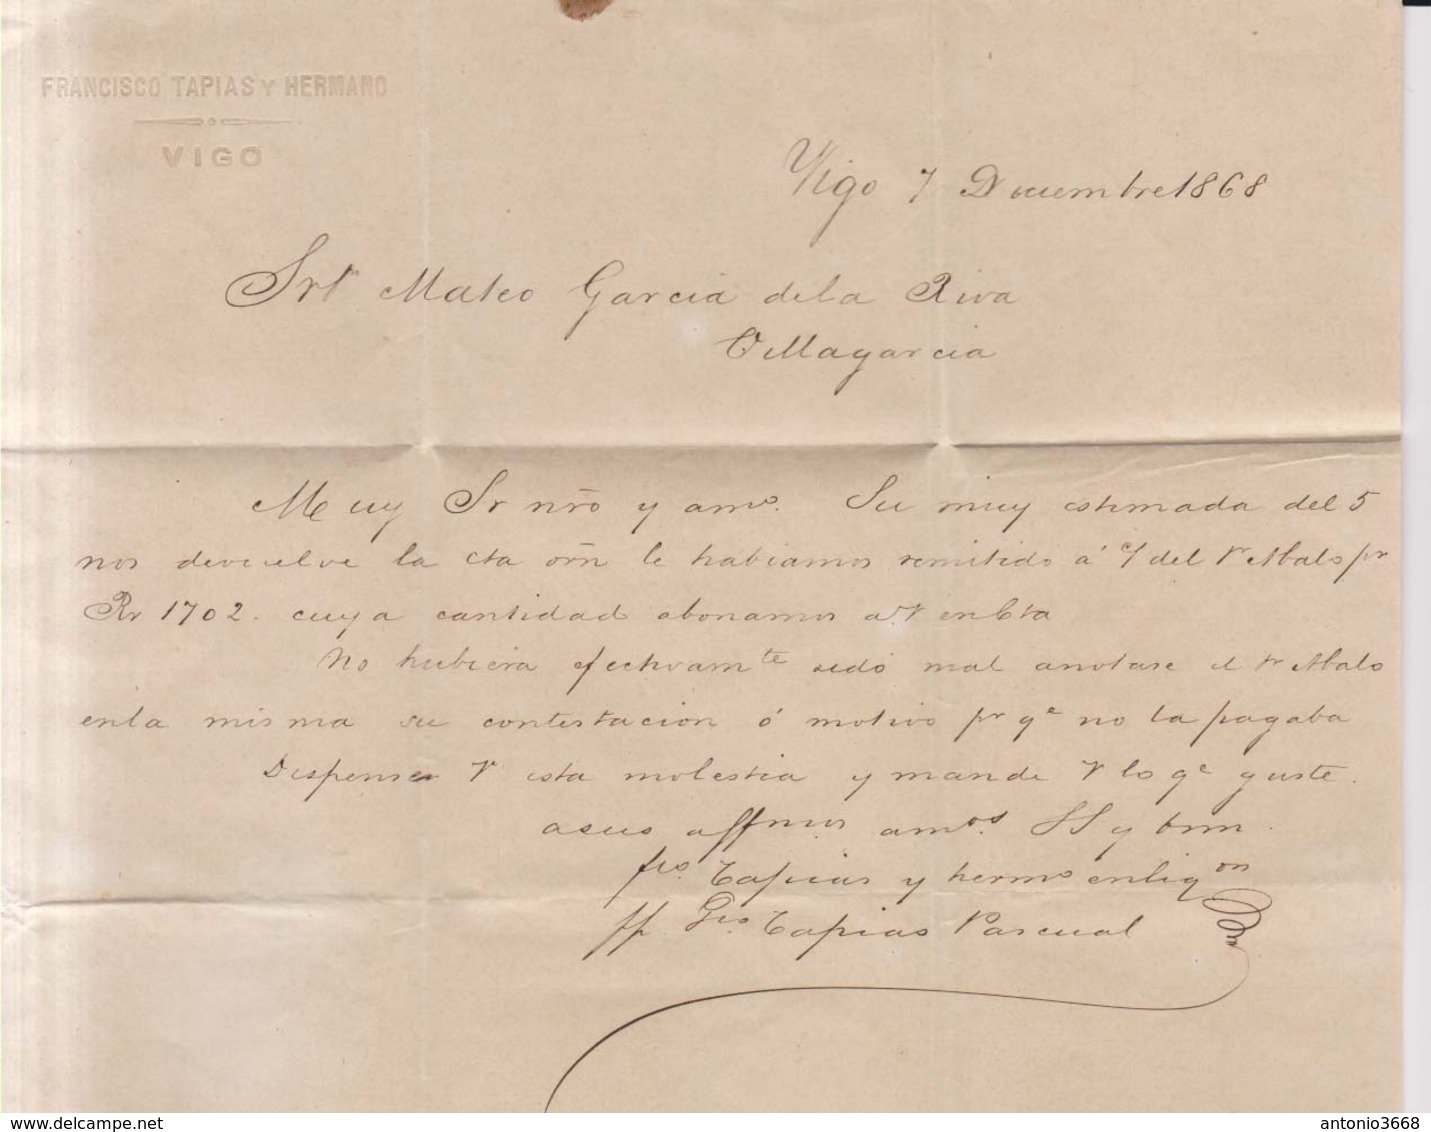 FRANCISCO TAPIAS Y HERMANO
VIGO
Vigo 7 Diciembre 1868
Mateo Garcia de la Riva
Villagarcia
Muy Sr nro y amo. Su muy estimada del 5
nos devuelve la cta le habiamos remitido á c/ del Sr Abalo pr
Rv 1702. cuya cantidad abonamos a V en Cta
No hubiera efectivamte sido mal anotase el Sr Abalo
en la misma su contestacion ó motivo pr qe no la pagaba
Dispense V esta molestia y mande V lo qe guste.
a sus affmos amos. SS y bmm.
Fco. Tapias y hermo en liqon
pp Tapias Pascual
www.delcampe.net
antonio3668